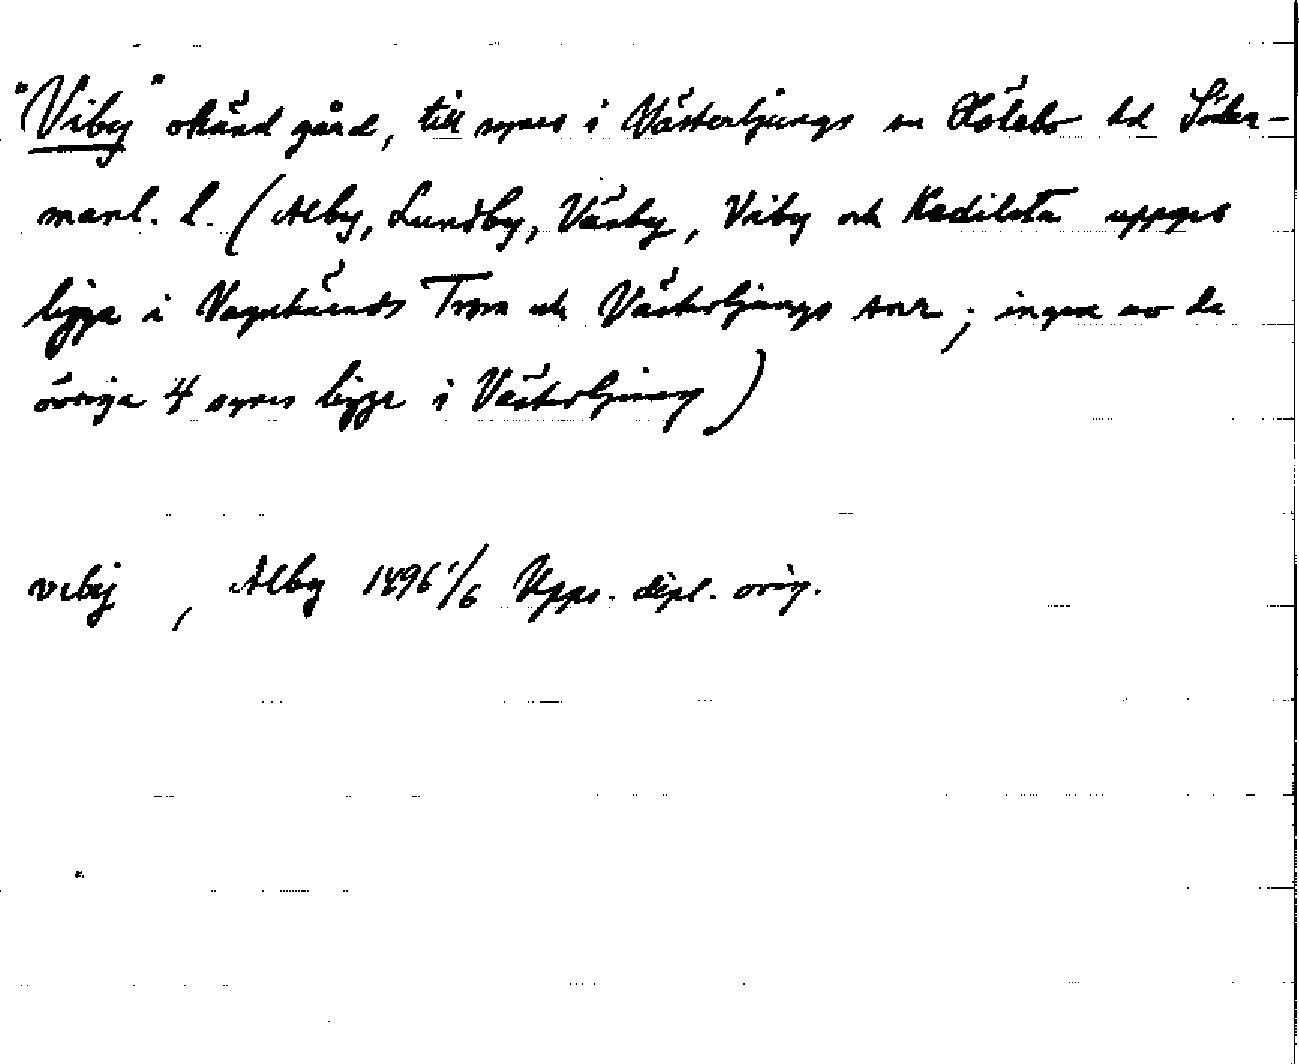 "Viby" okänd gård, till synes i Västerljungs sn Hölebo hd Söder-
manl. l. (Alby, Lundby, Väsby, Viby och Kadilsta uppges
ligga i Vagnhärads Trosa och Västerljungs snr; ingen av de
övriga 4 synes ligga i Västerljung)
viby , Alby 1496 1/6 Upps. dipl. orig.